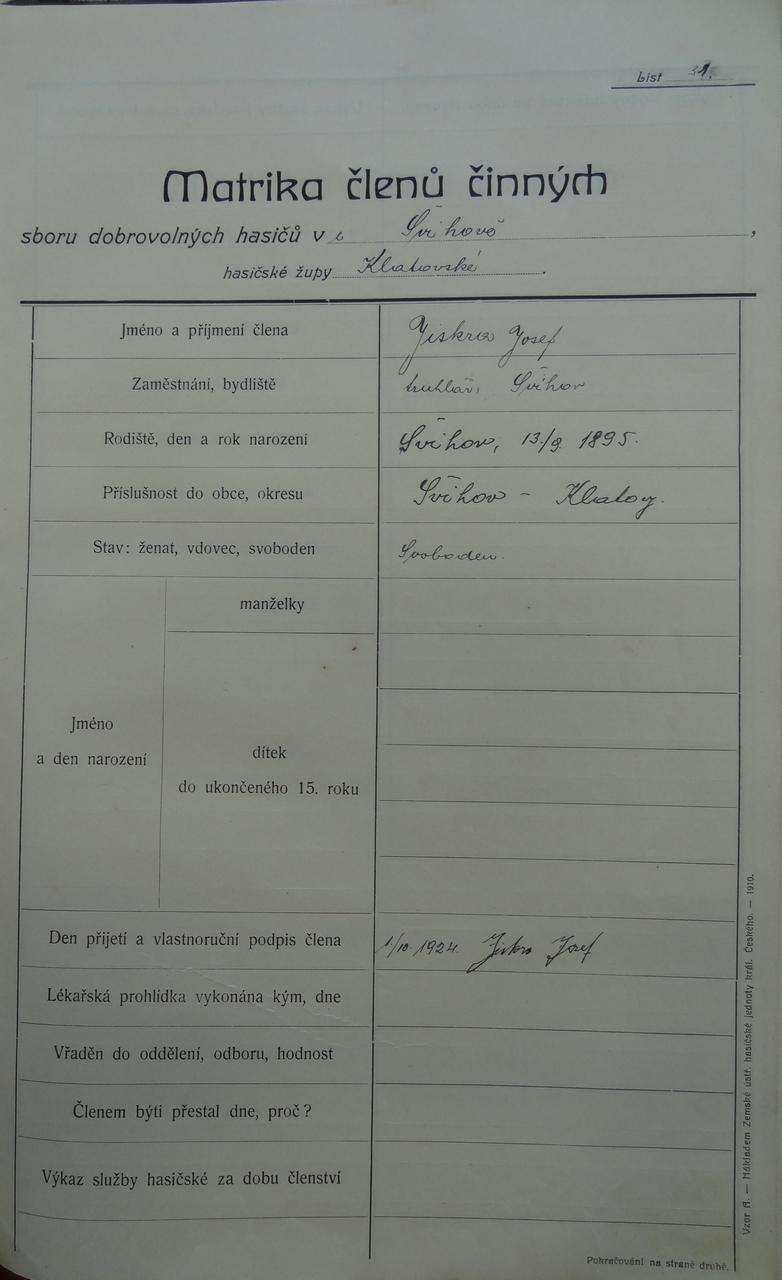 List 31.
Matrika členů činných
sboru dobrovolných hasičů v Švihově,
hasičské župy Klatovské.
Jméno a příjmení člena Jiskra Josef
Zaměstnání, bydliště truhlář, Švihov
Rodiště, den a rok narození Švihov, 13./9. 1895.
Příslušnost do obce, okresu Švihov - Klatovy.
Stav: ženat, vdovec, svoboden Svoboden.
manželky
Jméno
a den narození
dítek
do ukončeného 15. roku
Den přijetí a vlastnoruční podpis člena 1/10 1924. Jiskra Josef
Lékařská prohlídka vykonána kým, dne
Vřaděn do oddělení, odboru, hodnost
Členem býti přestal dne, proč?
Výkaz služby hasičské za dobu členství
Vzor A. — Nákladem Zemské ústř. hasičské jednoty král. Českého. — 1910.
Pokračování na straně druhé.